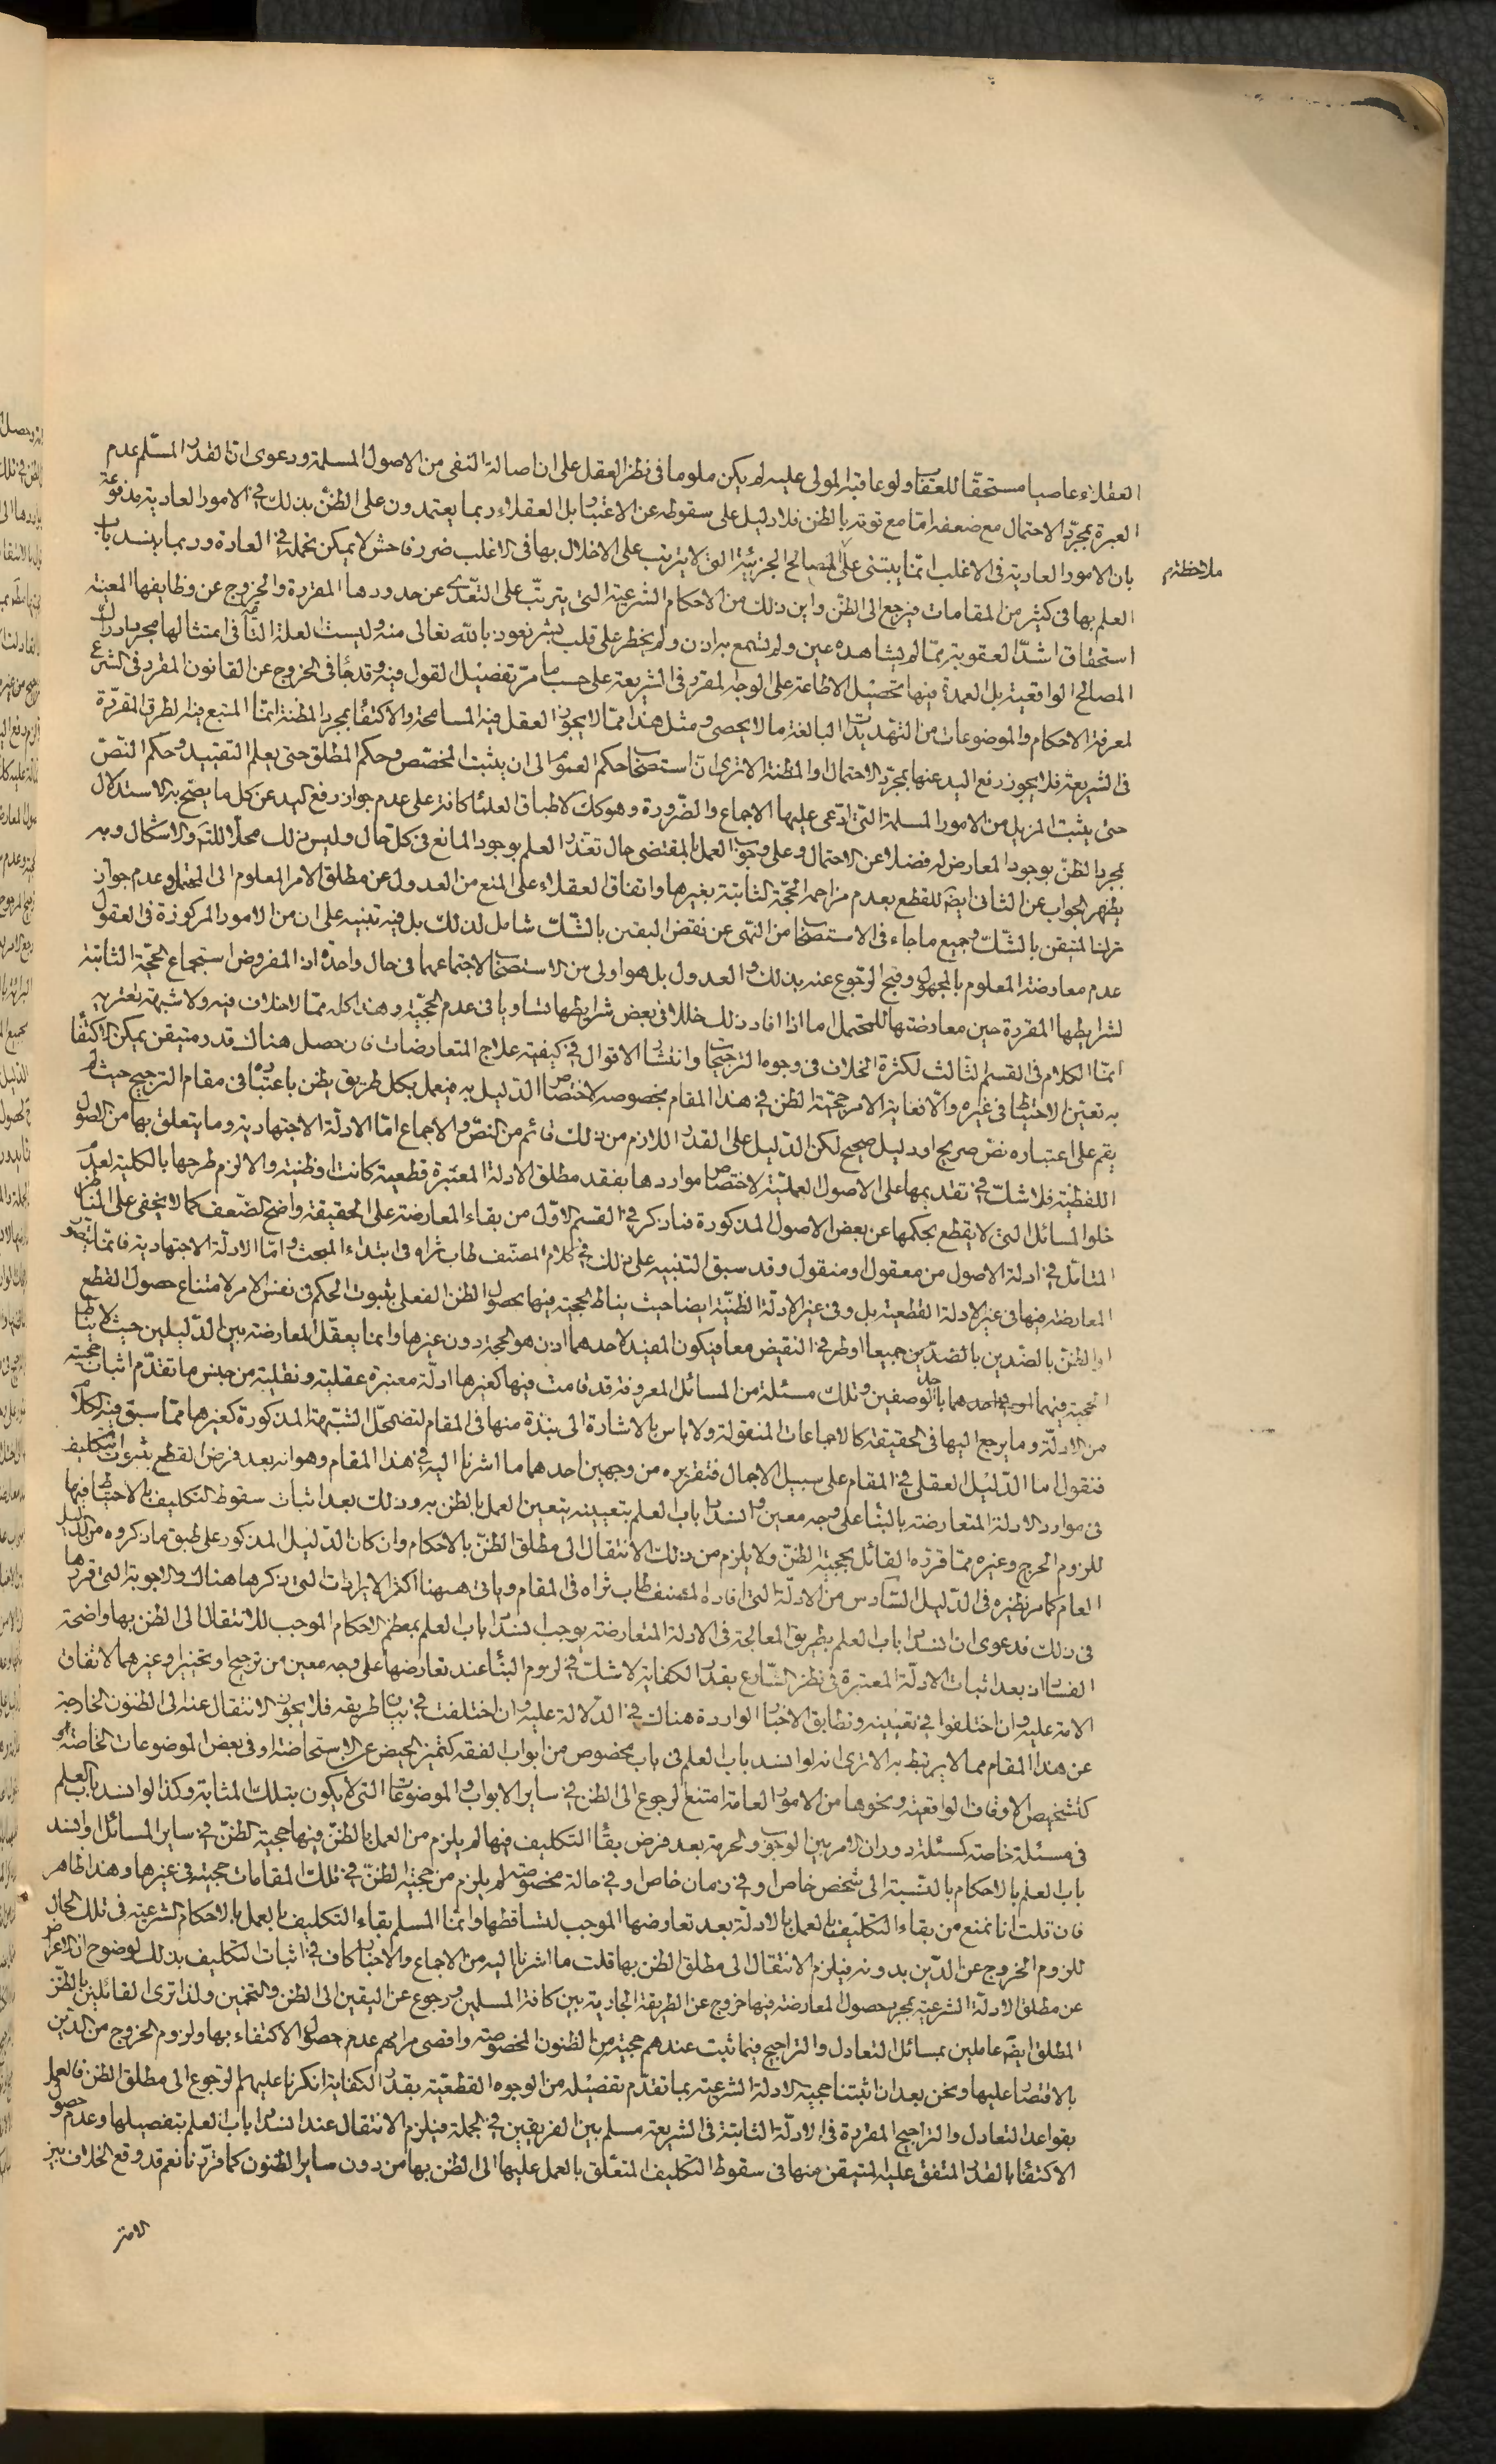 العقلاء عاصيا مستحقا للعقاب ولو عاقبه المولى عليه لم يكن ملوما فى نظر العقل على ان اصالة النفى من الاصول المسلمة ودعوى ان القدر المسلم عدم
العبرة بمجرد الاحتمال مع ضعفه اما مع قوته بالظن فلا دليل على سقوطه عن الاعتبار بل العقلاء ربما يعتمدون على الظن بذلك فى الامور العادية مدفوعة
بان الامور العادية فى الاغلب انما يبتنى على المصالح الجزئية التى لا يترتب على الاخلال بها فى الاغلب ضرر فاحش لا يمكن تحمله فى العادة وربما ينسد باب
ملاحظة م
العلم بها فى كثير من المقامات فيرجع الى الظن واين ذلك من الاحكام الشرعية التى يترتب على التعدى عن حدودها المقررة والخروج عن وظايفها المعينة
استحقاق اشد العقوبة مما لم يشاهده عين ولم تسمع به اذن ولم يخطر على قلب بشر نعوذ بالله تعالى منه وليست العلة التامة فى امتثالها مجرد ادراك
المصالح الواقعية بل العمدة فيها تحصيل الاطاعة على الوجه المقرر فى الشريعة على حسب ما مر تفصيل القول فيه وقد جاء فى الخروج عن القانون المقرر فى الشرع
لمعرفة الاحكام والموضوعات من التهديدات البالغة ما لا يحصى ومثل هذا مما لا يجوز العقل فيه المسامحة والاكتفاء بمجرد المظنة انما المتبع فيه الطرق المقررة
فى الشريعة فلا يجوز رفع اليد عنها بمجرد الاحتمال والمظنة الا ترى ان استصحاب حكم العموم الى ان يثبت المخصص وحكم المطلق حتى يعلم التقييد وحكم النص
حتى يثبت المزيل من الامور المسلمة التى ادعى عليها الاجماع والضرورة وهو كك لاطباق العلماء كافة على عدم جواز رفع اليد عن كل ما يصح به الاستدلال
بمجرد الظن بوجود المعارض له فضلا عن الاحتمال وعلى وجوب العمل بالمقتضى حال تعذر العلم بوجود المانع فى كل حال وليس ذلك محلا للتامل والاشكال وبه
يظهر الجواب عن الثانى ايضا للقطع بعدم مزاحمة الحجة الثابتة بغيرها واتفاق العقلاء على المنع من العدول عن مطلق الامر المعلوم الى المحتمل وعدم جواز
ترك المتيقن بالشك وجميع ما جاء فى الاستصحاب من النهى عن نقض اليقين بالشك شامل لذلك بل فيه تنبيه على ان من الامور المركوزة فى العقول
عدم معارضة المعلوم بالمجهول وقبح الرجوع عنه بذلك والعدول بل هو اولى من الاستصحاب لاجتماعهما فى حال واحدة اذ المفروض استجماع الحجة الثابتة
لشرايطها المقررة حين معارضتها للمحتمل اما اذا افاد ذلك خللا فى بعض شرايطها تساويا فى عدم الحجية وهذا كله مما لا خلاف فيه ولا شبهة تعتريه
انما الكلام فى القسم الثالث لكثرة الخلاف فى وجوه الترجيحات وانتشار الاقوال فى كيفية علاج المتعارضات فان حصل هناك قدر متيقن يمكن الاكتفاء
به تعين الاحتياط فى غيره والا فغاية الامر حجية الظن فى هذا المقام بخصوصه لاختصاص الدليل به فيعمل بكل طريق يظن باعتباره فى مقام الترجيح حيث لم
يقم على اعتباره نص صريح او دليل صحيح لكن الدليل على القدر اللازم من ذلك قائم من النص والاجماع اما الادلة الاجتهادية وما يتعلق بها من الاصول
اللفظية فلا شك فى تقديمها على الاصول العملية لاختصاص مواردها بفقد مطلق الادلة المعتبرة قطعية كانت او ظنية والا لزم طرحها بالكلية لعدم
خلو المسائل التى لا يقطع بحكمها عن بعض الاصول المذكورة فما ذكر فى القسم الاول من بقاء المعارضة على الحقيقة واضح الضعف كما لا يخفى على الناظر
المتامل فى ادلة الاصول من معقول او منقول وقد سبق التنبيه على ذلك فى كلام المصنف طاب ثراه فى ابتداء المبحث واما الادلة الاجتهادية فانما يتصور
المعارضة فيها فى غير الادلة القطعية بل وفى غير الادلة الظنية ايضا حيث يناط الحجية فيها بحصول الظن الفعلى بثبوت الحكم فى نفس الامر لامتناع حصول القطع
او الظن بالضدين بالضدين جميعا او طرفى النقيض معا فيكون المفيد لاحدهما اذن هو الحجة دون غيرها وانما يعقل المعارضة بين الدليلين حيث لا يناط
الحجية فيهما باحد الوصفين وتلك مسئلة من المسائل المعروفة قد قامت فيها كغيرها ادلة معتبرة عقلية ونقلية من جنس ما تقدم اثبات حجيته
من الادلة وما يرجع اليها فى الحقيقة كالاجماعات المنقولة ولا باس بالاشارة الى نبذة منها فى المقام لتضمحل الشبهة المذكورة كغيرها مما سبق فيه الكلام
فنقول اما الدليل العقلى فى المقام على سبيل الاجمال فتقريره من وجهين احدهما ما اشرنا اليه فى هذا المقام وهو انه بعد فرض القطع بثبوت التكليف
فى موارد الادلة المتعارضة بالبناء على وجه معين وانسداد باب العلم بتعيينه يتعين العمل بالظن به وذلك بعد اثبات سقوط التكليف بالاحتياط فيها
للزوم الحرج وغيره مما قرره القائل بحجية الظن ولا يلزم من ذلك الانتقال الى مطلق الظن بالاحكام وان كان الدليل المذكور على طبق ما ذكروه من الدليل
العام كما مر نظيره فى الدليل السادس من الادلة التى افاده المصنف طاب ثراه فى المقام وياتى ههنا اكثر الايرادات التى ذكرها هناك والاجوبة التى قررها
فى ذلك فدعوى ان انسداد باب العلم بطريق المعالجة فى الادلة المتعارضة يوجب انسداد باب العلم بمعظم الاحكام الموجب للانتقال الى الظن بها واضحة
الفساد اذ بعد اثبات الادلة المعتبرة فى نظر الشارع بقدر الكفاية لا شك فى لزوم البناء عند تعارضها على وجه معين من ترجيح او تخيير او غيرهما لاتفاق
الامة عليه وان اختلفوا فى تعيينه وتطابق الاخبار الواردة هناك فى الدلالة عليه وان اختلفت فى بيان طريقه فلا يجوز الانتقال عنه الى الظنون الخارجة
عن هذا المقام مما لا يرتبط به الا ترى انه لو انسد باب العلم فى باب مخصوص من ابواب الفقه كتميز الحيض عن الاستحاضة او فى بعض الموضوعات الخاصة
كتشخيص الاوقاف الواقعية ونحوها من الامور العامة امتنع الرجوع الى الظن فى ساير الابواب والموضوعات التى لا يكون بتلك المثابة وكذا لو انسد باب العلم
فى مسئلة خاصة كمسئلة دوران الامر بين الوجوب والحرمة بعد فرض بقاء التكليف فيها لم يلزم من العمل بالظن فيها حجية الظن فى ساير المسائل او انسد
باب العلم بالاحكام بالنسبة الى شخص خاص او فى زمان خاص او فى حالة مخصوصة لم يلزم من حجية الظن فى تلك المقامات حجيته فى غيرها وهذا ظاهر
فان قلت انا نمنع من بقاء التكليف بالعمل بالادلة بعد تعارضها الموجب لتساقطها وانما المسلم بقاء التكليف بالعمل بالاحكام الشرعية فى تلك الحال
للزوم الخروج عن الدين بدونه فيلزم الانتقال الى مطلق الظن بها قلت ما اشرنا اليه من الاجماع والاخبار كاف فى اثبات التكليف بذلك لوضوح ان الاعراض
عن مطلق الادلة الشرعية بمجرد حصول المعارضة فيها خروج عن الطريقة الجارية بين كافة المسلمين ورجوع عن اليقين الى الظن والتخمين ولذا ترى القائلين بالظن
المطلق ايضا عاملين بمسائل التعادل والتراجيح فيما ثبت عندهم حجيته من الظنون المخصوصة واقصى مرامهم عدم حصول الاكتفاء بها ولزوم الخروج من الدين
بالاقتصار عليها ونحن بعد ان اثبتنا حجية الادلة الشرعية بما تقدم تفصيله من الوجوه القطعية بقدر الكفاية انكرنا عليهم الرجوع الى مطلق الظن فالعمل
بقواعد التعادل والتراجيح المقررة فى الادلة الثابتة فى الشريعة مسلم بين الفريقين فى الجملة فيلزم الانتقال عند انسداد باب العلم بتفصيلها وعدم حصول
الاكتفاء بالقدر المتفق عليه المتيقن منها فى سقوط التكليف المتعلق بالعمل عليها الى الظن بها من دون ساير الظنون كما قررنا نعم قد وقع الخلاف بين